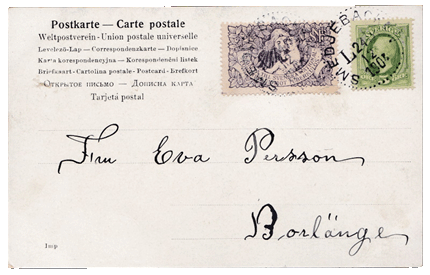 Postkarte — Carte postale
Weltpostverein - Union postale universelle
Levelező-Lap — Correspondenzkarte — Dopisnice
Karta korespondencyjna — Korespondenční lístek
Briefkaart - Cartolina postale - Postcard - Brefkort
Открытое письмо — Дописна карта
Tarjetă postal
SMEDJEBACKEN
Fru Eva Persson
Borlänge
Imp